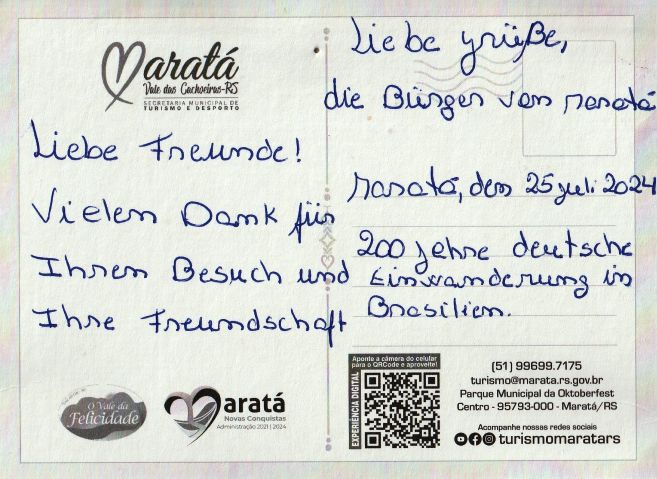 Maratá
Vale das Cachoeiras-RS
SECRETARIA MUNICIPAL DE
TURISMO E DESPORTO
Liebe Freunde!
Vielen Dank für
Ihren Besuch und
Ihre Freundschaft
O Vale da
Felicidade
Maratá
Novas Conquistas
Administração 2021 | 2024
Liebe grüße,
die Bürger von Maratá
Maratá, den 25 juli 2024
200 jehre deutsche
Einwanderung in
Brasilien.
Aponte a câmera do celular
para o QRCode e aproveite!
EXPERIÊNCIA DIGITAL
(51) 99699.7175
turismo@marata.rs.gov.br
Parque Municipal da Oktoberfest
Centro - 95793-000 - Maratá/RS
Acompanhe nossas redes sociais
turismomaratars